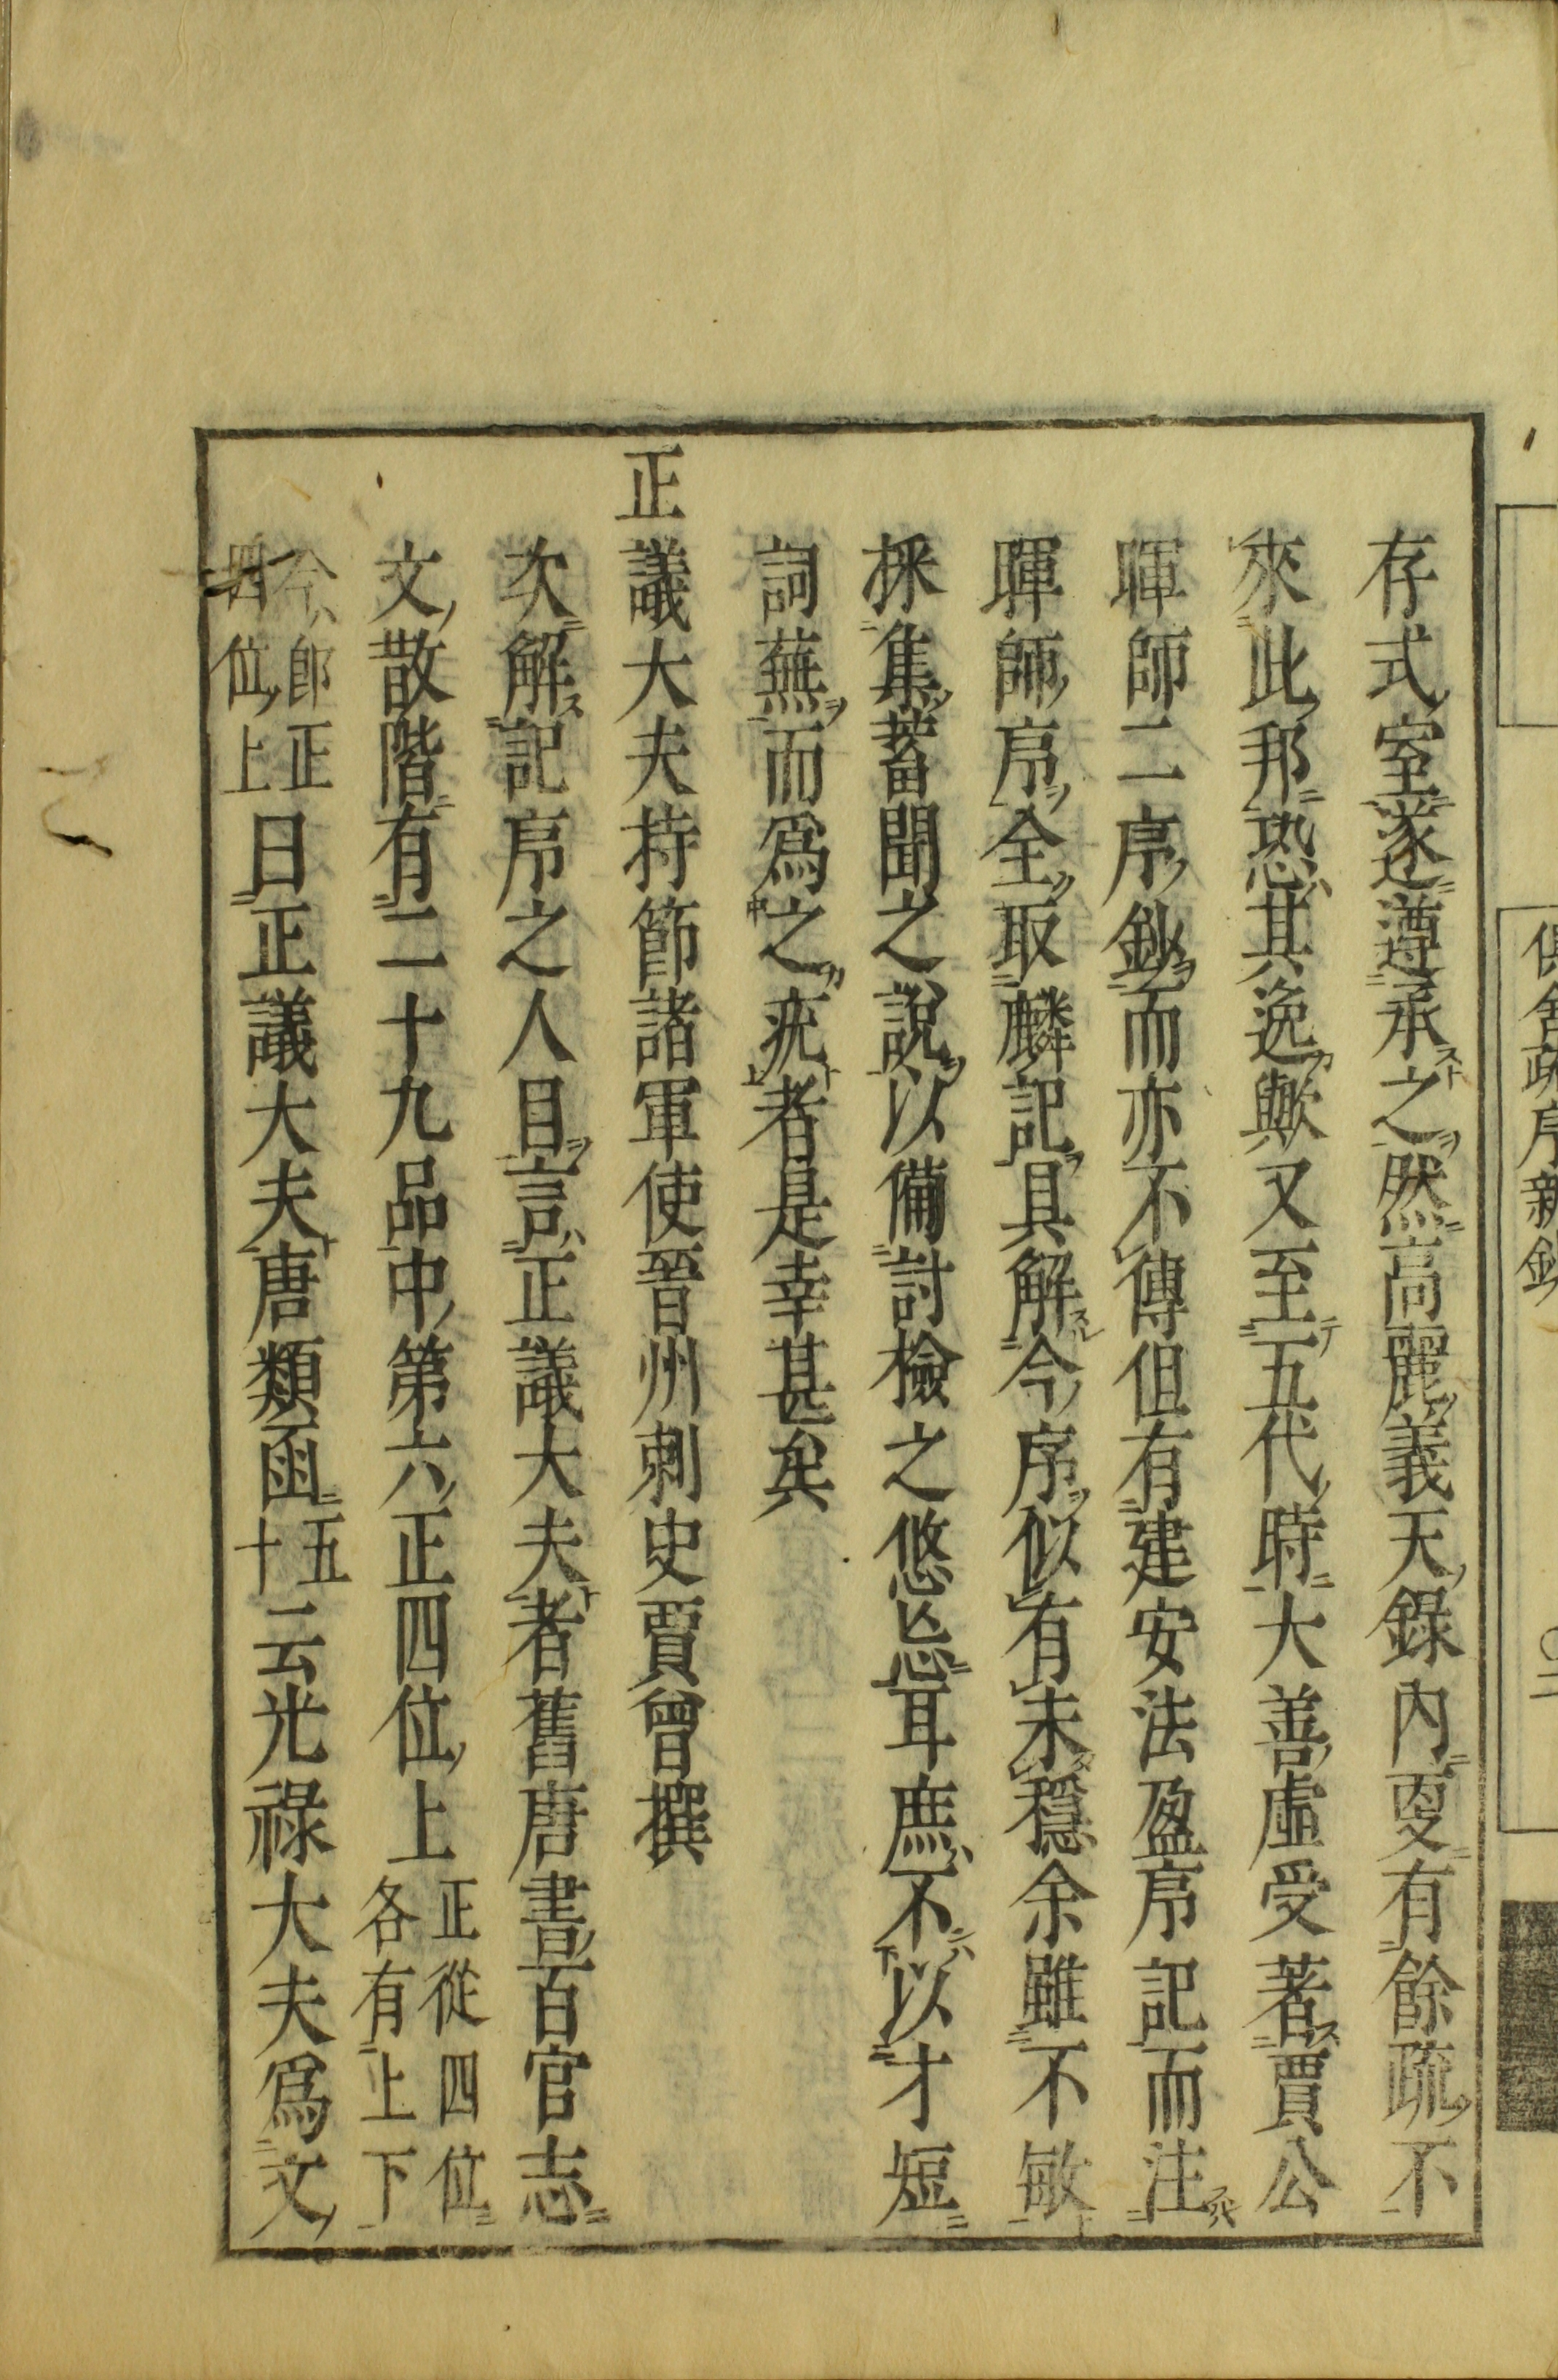 存式室遂遵承之然高麗義天錄內更有餘疏不
來此邦恐其逸歟又至五代時大善虛受著賈公
暉師二序鈔而亦不傳但有建安法盈序記而注
暉師序全取麟記具解今序似有未穩余雖不敏
採集蓄聞之說以備討檢之悠忘耳庶不以才短
詞蕪而爲之疣者是幸甚矣
正議大夫持節諸軍使晉州刺史賈曾撰
次解記序之人目言正議大夫者舊唐書百官志
文散階有二十九品中第六正四位上正從四位各有上下
今郎正四位上曰正議大夫唐類函五十云光祿大夫爲文
俱舍疏序新鈔 〇二